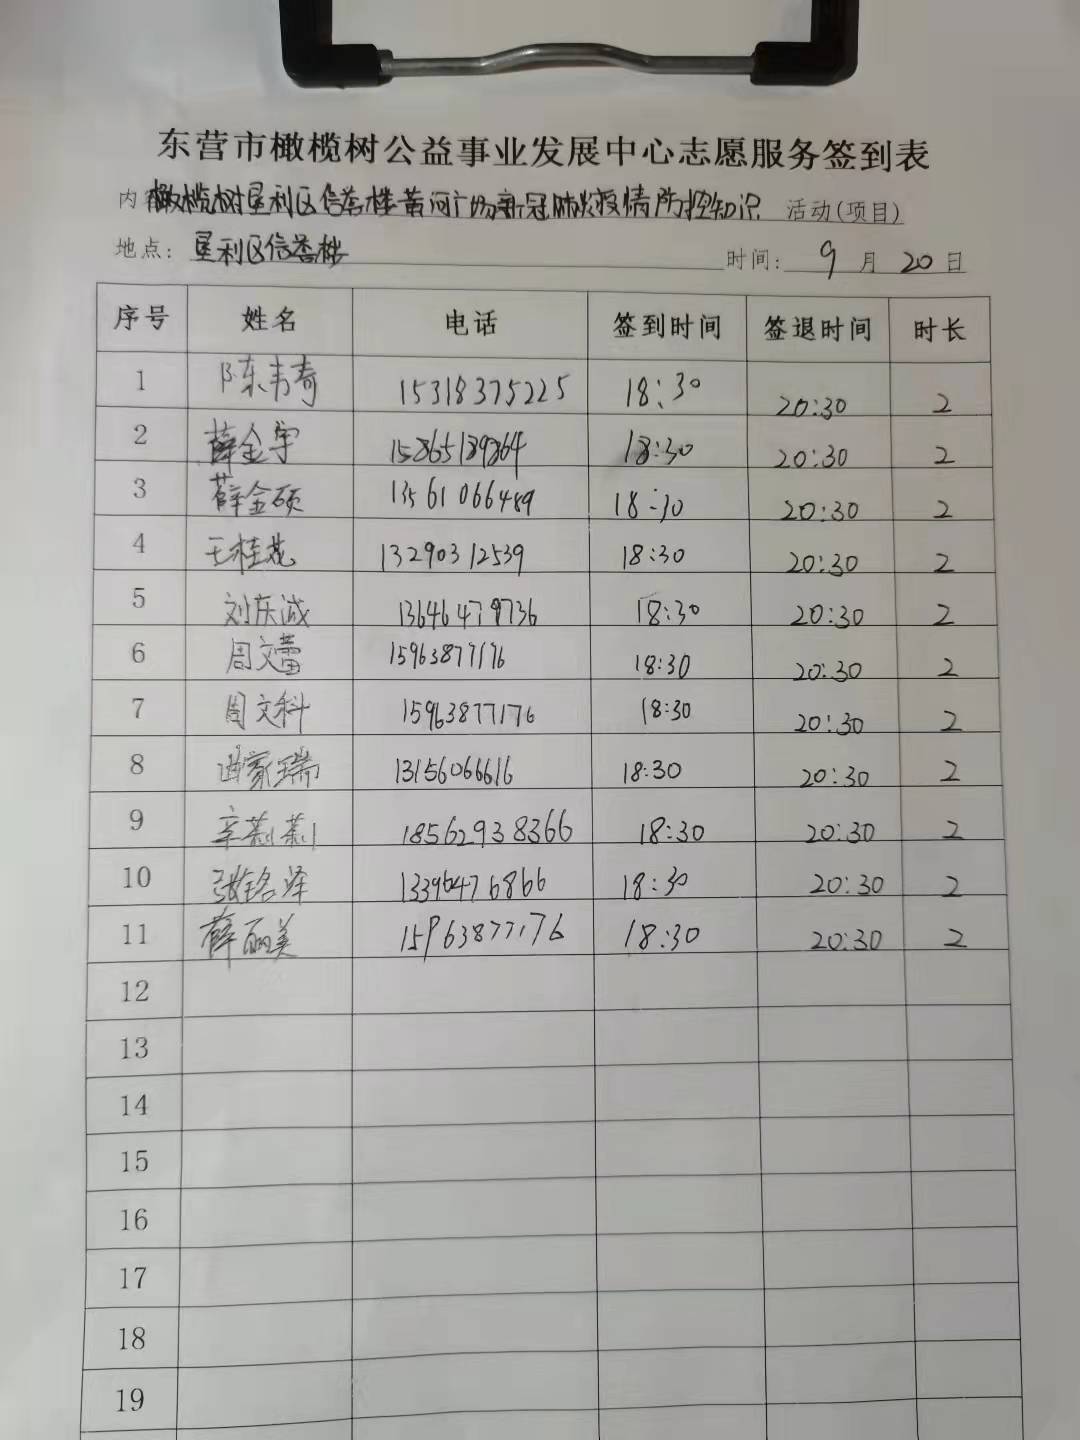 东营市橄榄树公益事业发展中心志愿服务签到表
内 橄榄树垦利区信誉楼黄河广场新冠肺炎疫情防控知识 活动(项目)
地点: 垦利区信誉楼 时间: 9 月 20 日
序号 姓名 电话 签到时间 签退时间 时长
1 陈韦奇 15318375225 18:30 20:30 2
2 薛金宇 18:30 20:30 2
3 薛金硕 13561066489 18:30 20:30 2
4 王桂花 13290312539 18:30 20:30 2
5 刘庆诚 13646479736 18:30 20:30 2
6 周文蕾 15963877176 18:30 20:30 2
7 周文科 15963877176 18:30 20:30 2
8 家瑞 13156066616 18:30 20:30 2
9 辛 18562938366 18:30 20:30 2
10 张铭泽 18:30 20:30 2
11 薛丽美 15963877176 18:30 20:30 2
12
13
14
15
16
17
18
19